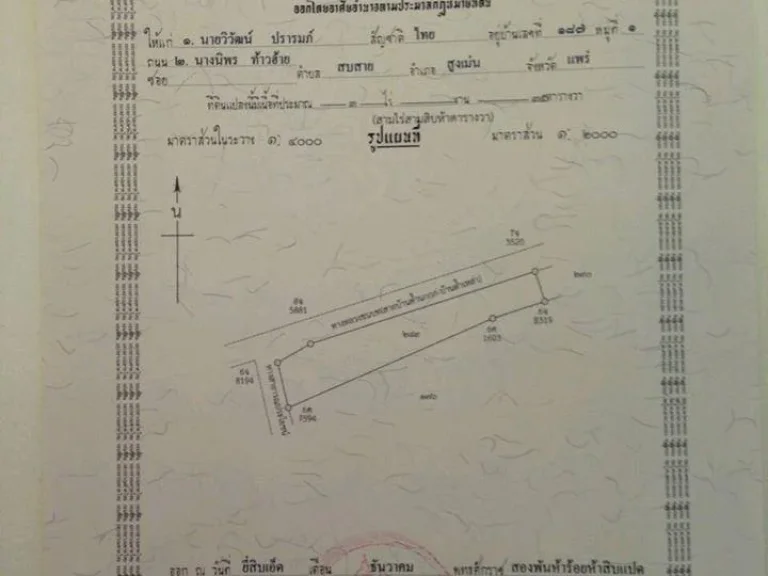 ออกโดยอาศัยอำนาจตามประมวลกฎหมายที่ดิน
ให้แก่ ๑. นายวิวัฒน์ ปรารมภ์ สัญชาติ ไทย อยู่บ้านเลขที่ ๑๘๗ หมู่ที่ ๑
ถนน ๒. นางนิพร ท้าวฮ้าย
ซอย ตำบล สบสาย อำเภอ สูงเม่น จังหวัด แพร่
ที่ดินแปลงนี้มีเนื้อที่ประมาณ ๓ ไร่ งาน ๓๕ ตารางวา
(สามไร่สามสิบห้าตารางวา)
มาตราส่วนในระวาง ๑: ๔๐๐๐ รูปแผนที่ มาตราส่วน ๑: ๒๐๐๐
น
7จ
5520
8จ
5881
ทางหลวงชนบท
6จ
8319
6ต
1603
6จ
8194
ทางสาธารณประโยชน์
6ต
7594
๑๗๖
ออก ณ วันที่ ยี่สิบเอ็ด เดือน ธันวาคม พุทธศักราช สองพันห้าร้อยห้าสิบแปด